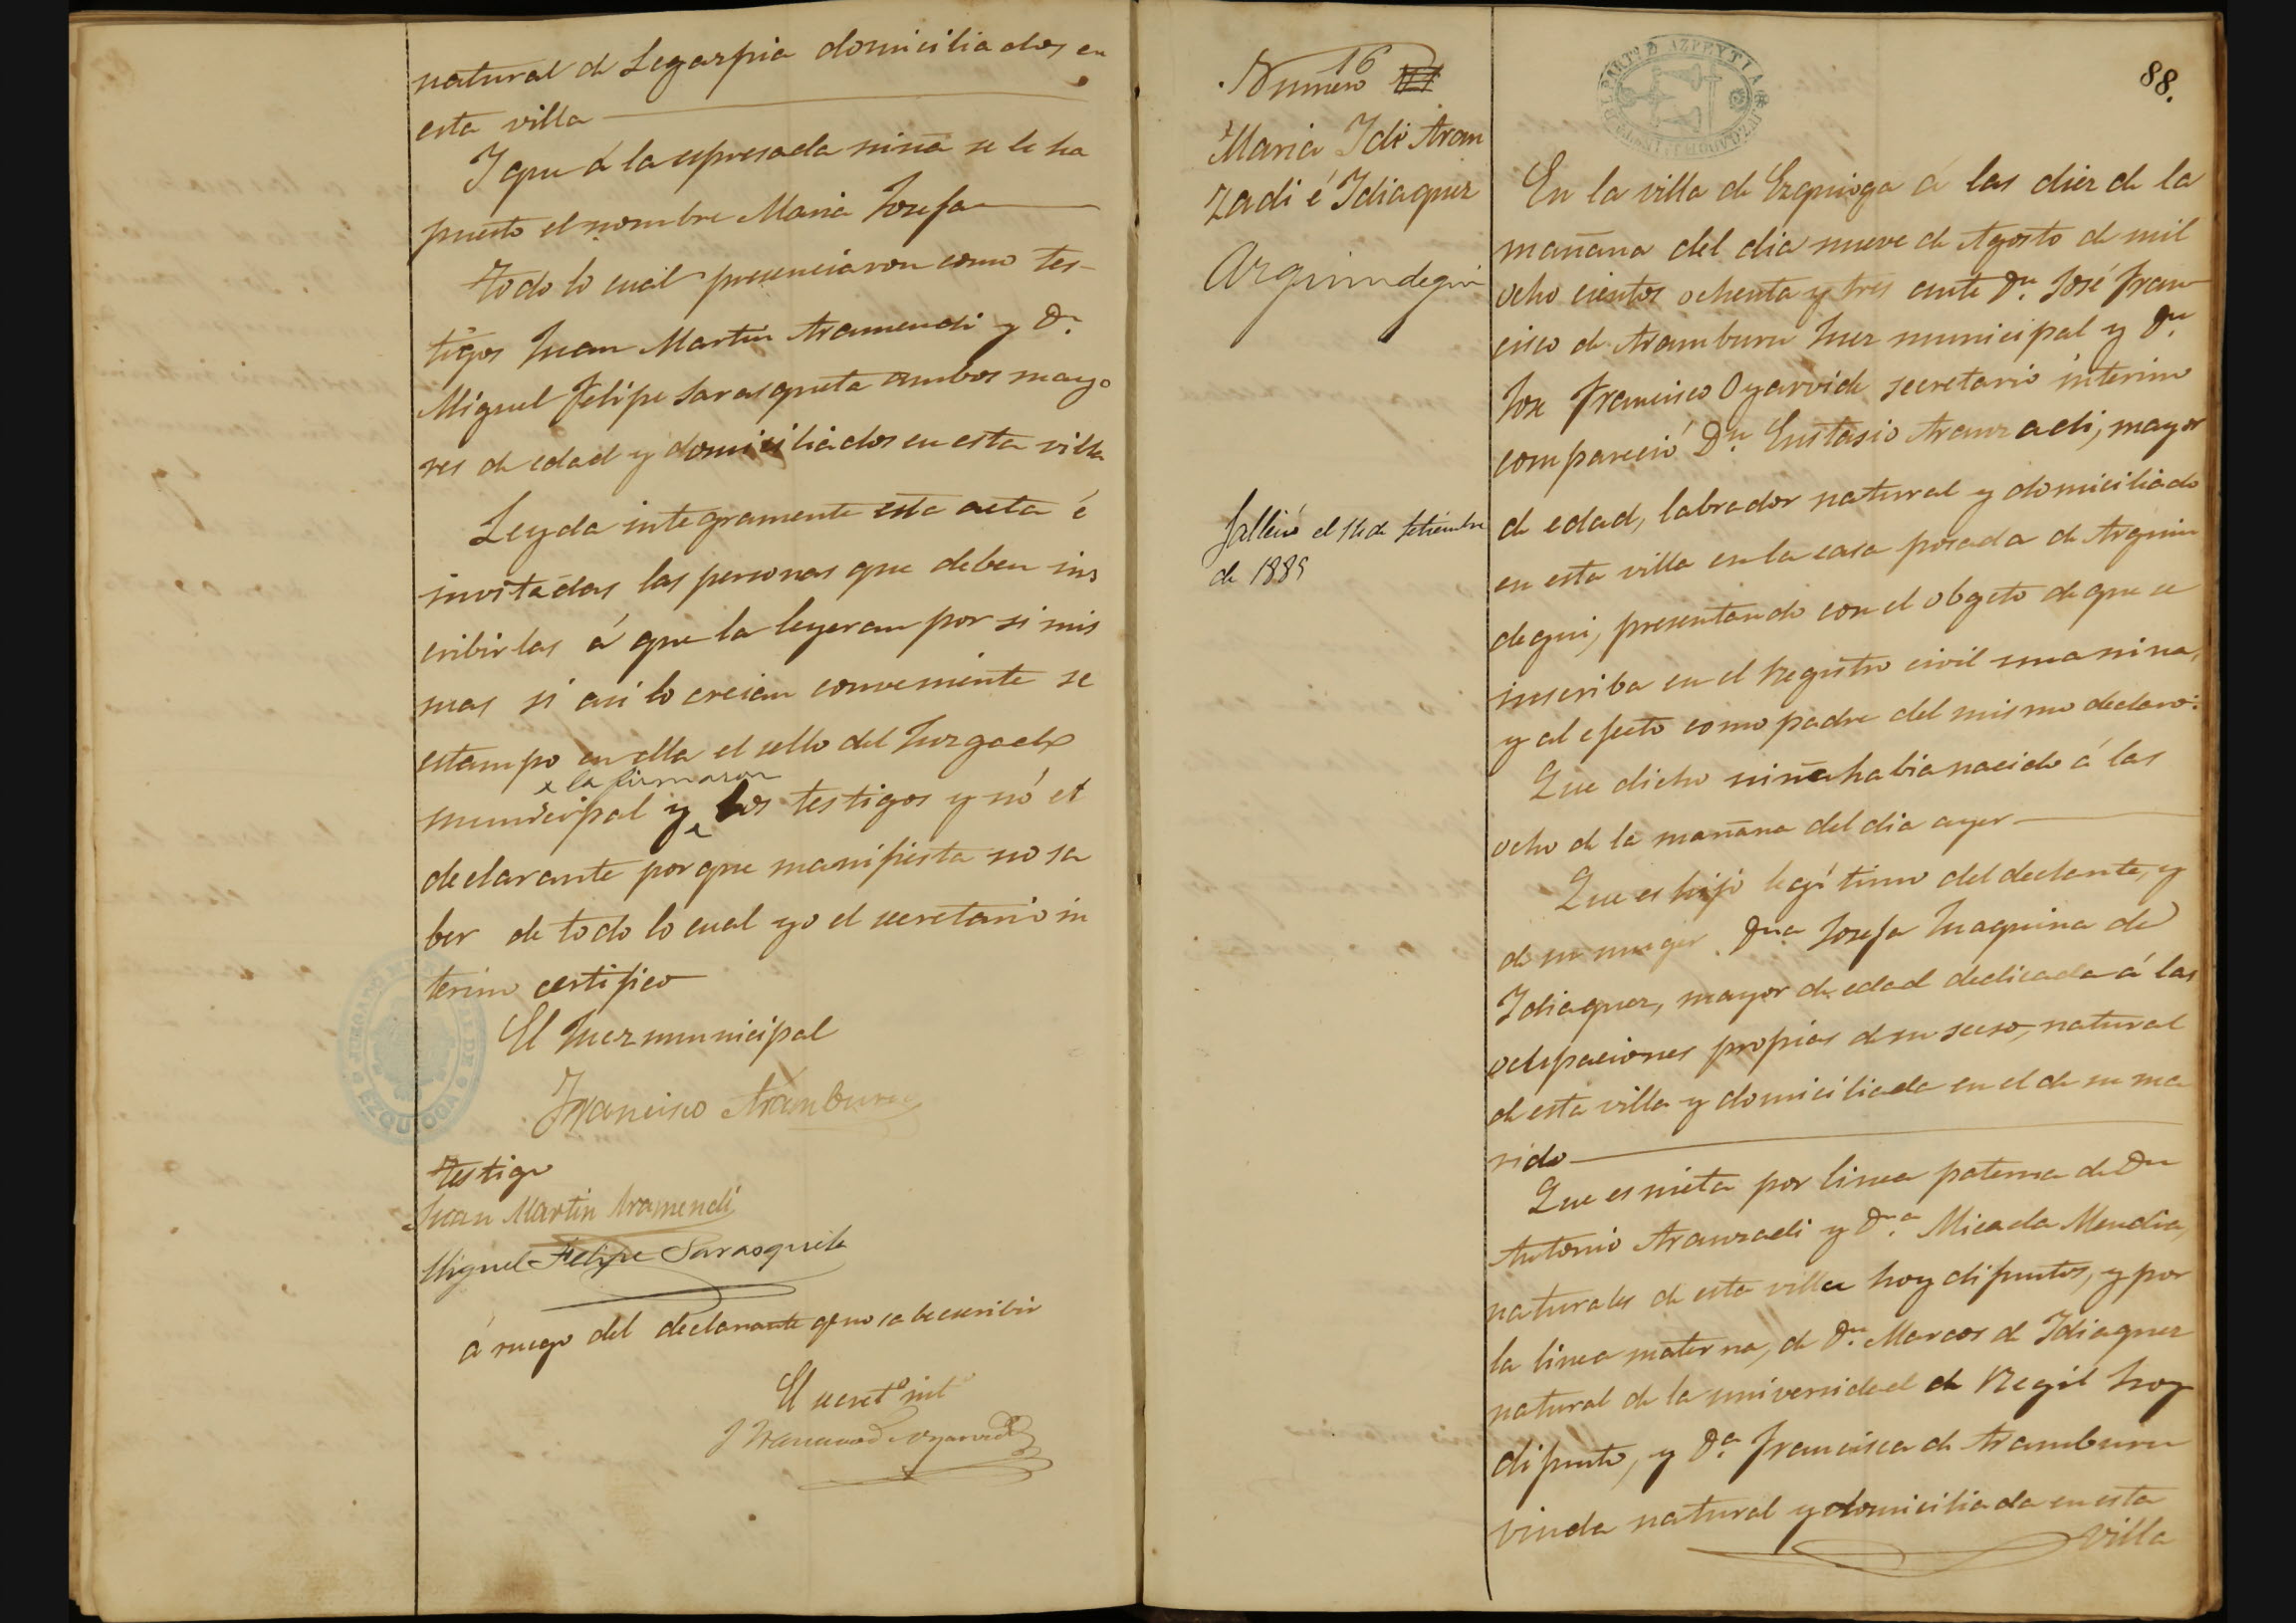 natural de Legarpia domiciliados en
esta villa
Y que á la espresada niña se le ha
puesto el nombre Maria Josefa
Todo lo cual presenciaron como tes-
tigos Juan Martin Aramendi y Dn.
Miguel Felipe Sarasqueta ambos mayo
res de edad y domiciliados en esta villa
Leyda integramente esta acta é
invitadas las personas que deben ins
cribirlas á que la leyeran por si mis
mas si asi lo creian conveniente se
estampo en ella el sello del Juzgado
x la firmaron
municipal y los testigos y nó el
declarante porque manifiesta no sa
ber de todo lo cual yo el secretario in
terino certifico
El Juez municipal
Francisco Aramburu
JUZGADO
EZQUIOGA
Testigo
Juan Martin Aramendi
Miguel Felipe Sarasqueta
á ruego del declarante q. no sabe escribir
El secret.o int.o
Francisco Oyarvide
88.
PART.o D AZPEYTIA
Numero 16
Maria Aran
zadi é Idiaquez
Arguindegui
Falleció el 14 de Setiembre
de 1885
En la villa de Ezquioga á las diez de la
mañana del dia nueve de Agosto de mil
ocho cientos ochenta y tres ante Dn. José Fran
cisco de Aramburu Juez municipal y Dn.
Jose Francisco Oyarvide secretario interino
compareció Dn. Eustasio Aranzadi, mayor
de edad, labrador natural y domiciliado
en esta villa en la casa posada de Arguin
degui, presentando con el obgeto de que se
inscriba en el Registro civil una nina,
y al efecto como padre del mismo declaró:
Que dicho niña habia nacido á las
ocho de la mañana del dia ayer
Que es hijo legitimo del declante, y
de su muger Dna Josefa Juaquina de
Idiaquez, mayor de edad dedicada á las
ocupaciones propias de su secso, natural
de esta villa y domiciliada en el de su ma
rido
Que es nieta por linea paterna de Dn
Antonio Aranzadi y Dna. Micaela Mendia,
naturales de esta villa hoy difuntos, y por
la linea materna, de Dn. Marcos de Idiaquez
natural de la universidad de Regil hoy
difunto, y Da. Francisca de Aramburu
viuda natural y domiciliada en esta
villa